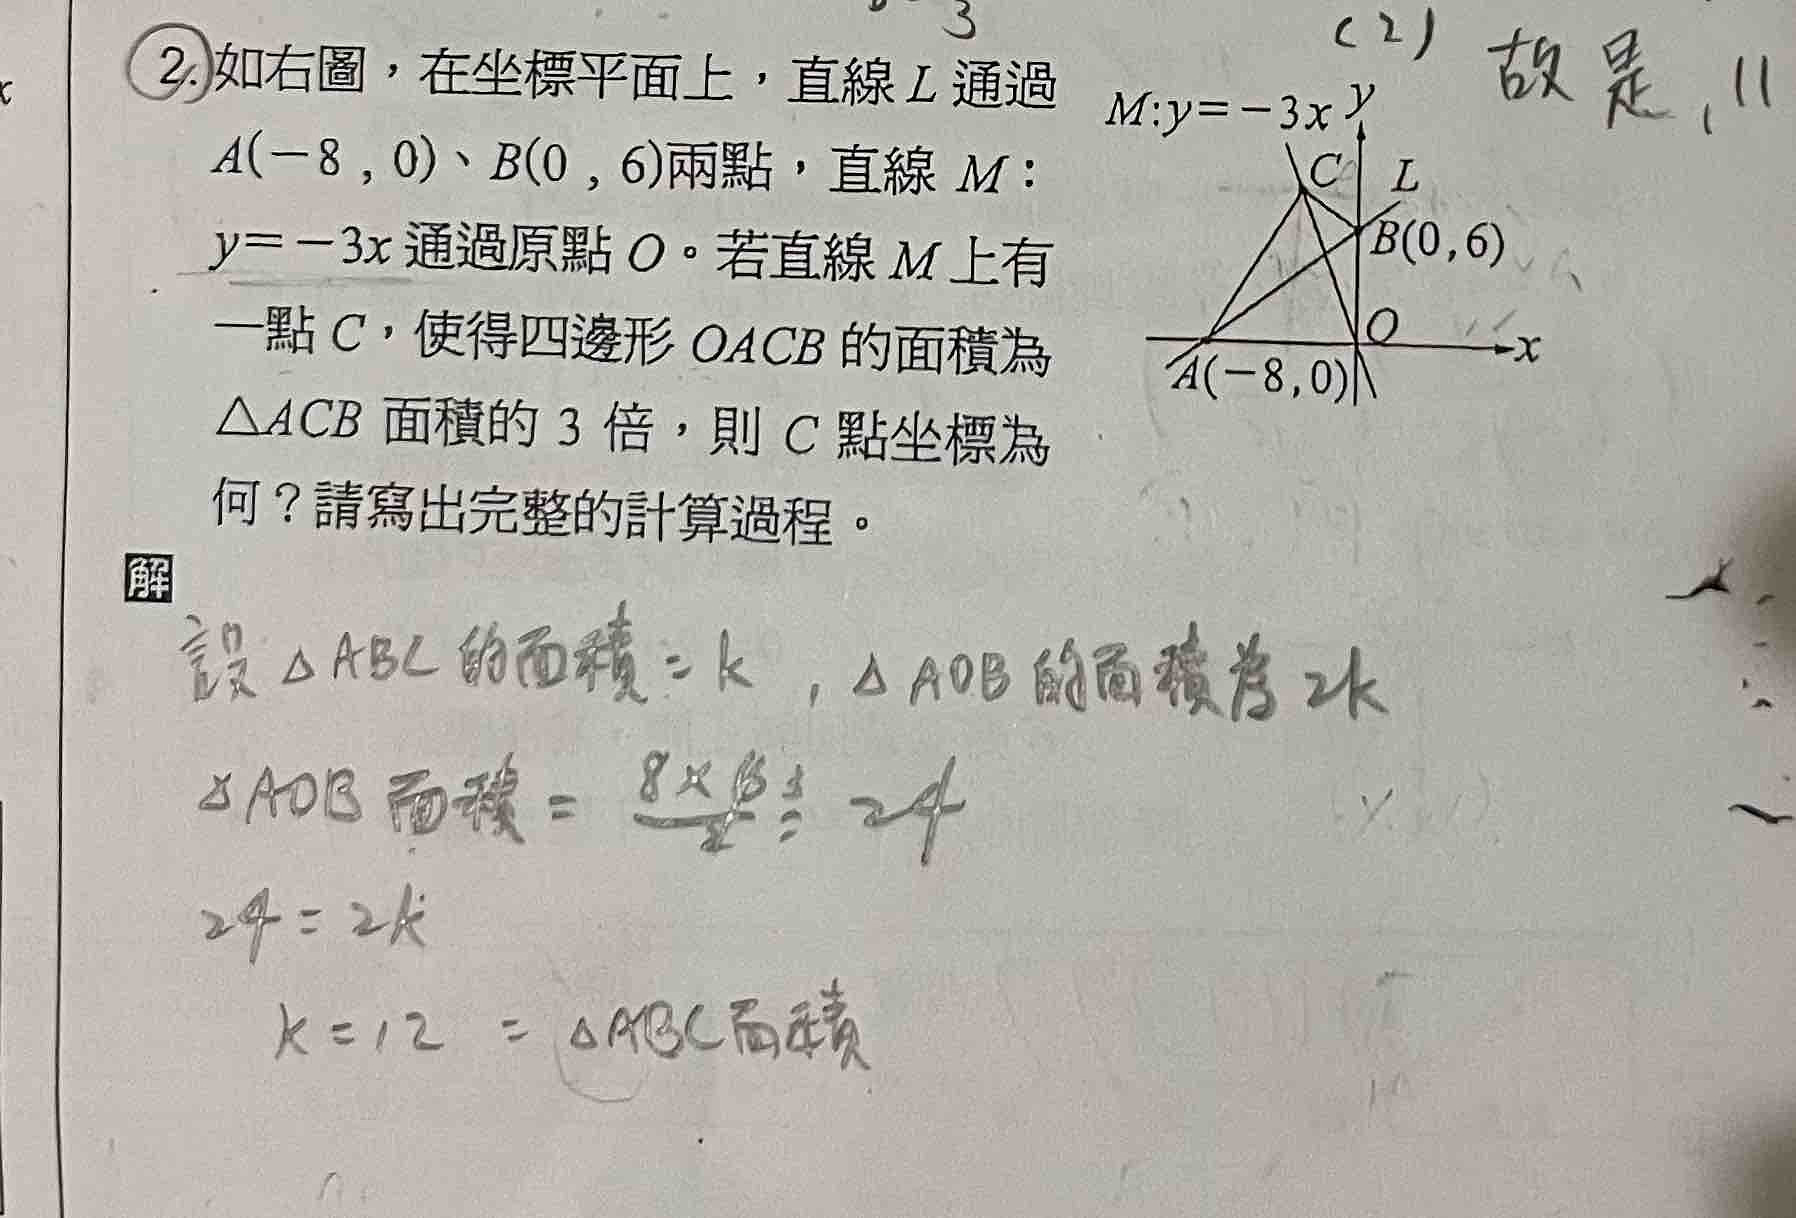 3
(2) 故是, 11
x
2. 如右圖，在坐標平面上，直線 L 通過
A(−8 , 0)、B(0 , 6)兩點，直線 M：
y=−3x 通過原點 O。若直線 M 上有
一點 C，使得四邊形 OACB 的面積為
△ACB 面積的 3 倍，則 C 點坐標為
何？請寫出完整的計算過程。
M:y=−3x y
C L
B(0,6)
O
x
A(−8,0)
解
設 △ABC 的面積 = k , △AOB 的面積為 2k
△AOB 面積 = 8×6/2 = 24
24 = 2k
k = 12 = △ABC 面積